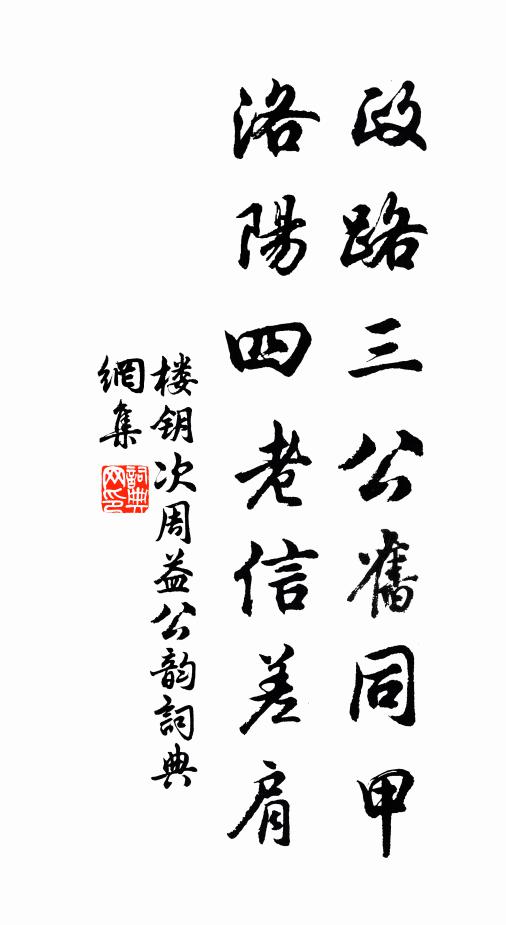 政路三公舊同甲
洛陽四老信差肩
楼钥次周益公韵詞典
網集
詞典
网印